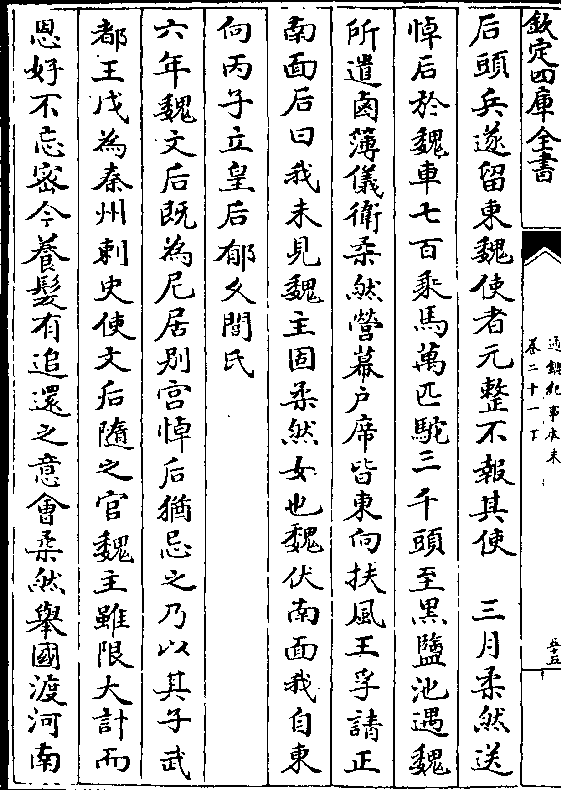 欽定四庫全書
通鑑紀事本末
卷二十一下
五十五
后頭兵遂留東魏使者元整不報其使　三月柔然送
悼后於魏車七百乘馬萬匹駝三千頭至黑鹽池遇魏
所遣鹵簿儀衛柔然營幕户席皆東向扶風王孚請正
南面后曰我未見魏主固柔然女也魏伏南面我自東
向丙子立皇后郁久閭氏
六年魏文后既為尼居别宫悼后猶忌之乃以其子武
都王戊為秦州刺史使文后隨之官魏主雖限大計而
恩好不忘密令養髮有追還之意㑹柔然舉國渡河南